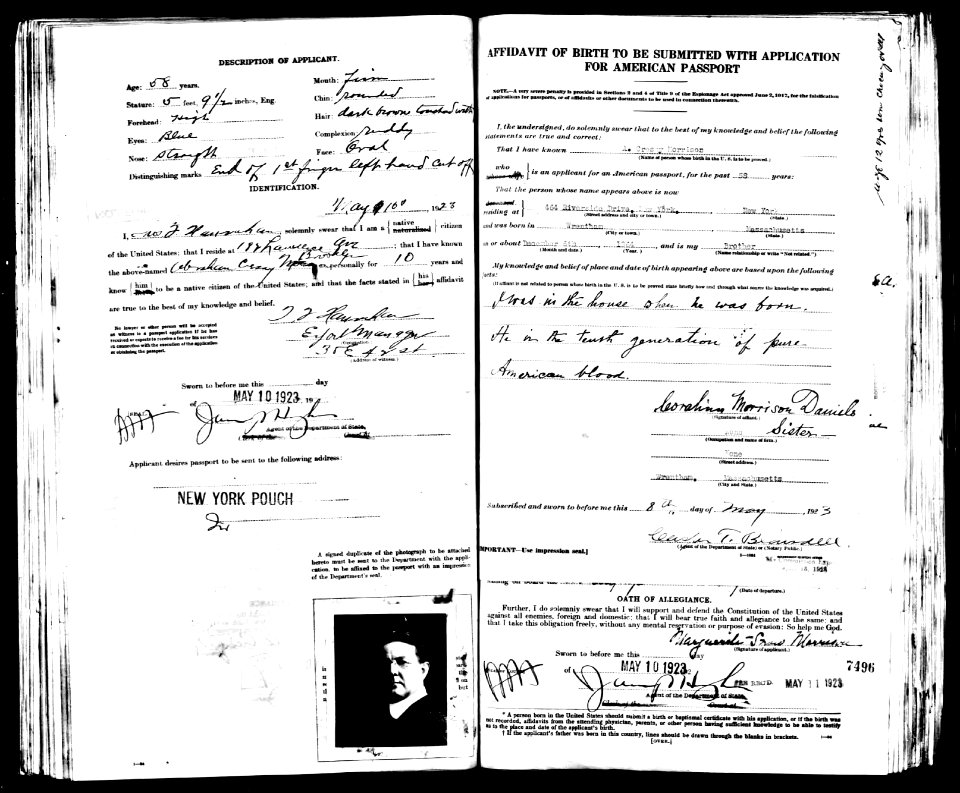 DESCRIPTION OF APPLICANT.
Age: 58 years.
Mouth: Firm
Stature: 5 feet, 9 1/2 inches, Eng.
Chin: rounded
Forehead: High
Hair: dark brown touched with
Eyes: Blue
Complexion: ruddy
Nose: straight
Face: Oval
Distinguishing marks End of 1st finger left hand cut off
IDENTIFICATION.
May 10, 1923
I, solemnly swear that I am a { native naturalized } citizen
of the United States; that I reside at ; that I have known
the above-named personally for 10 years and
know { him her } to be a native citizen of the United States; and that the facts stated in { his her } affidavit
are true to the best of my knowledge and belief.
No lawyer or other person will be accepted
as witness to a passport application if he has
received or expects to receive a fee for his services
in connection with the execution of the application
or obtaining the passport.
Export Manager
(Occupation)
35 E 42 st
(Address of witness.)
Sworn to before me this day
of MAY 10 1923, 19
[SEAL]
Agent of the Department of State.
Applicant desires passport to be sent to the following address:
NEW YORK POUCH
A signed duplicate of the photograph to be attached
hereto must be sent to the Department with the appli-
cation, to be affixed to the passport with an impression
of the Department's seal.
AFFIDAVIT OF BIRTH TO BE SUBMITTED WITH APPLICATION
FOR AMERICAN PASSPORT
NOTE.—A very severe penalty is provided in Sections 2 and 4 of Title 9 of the Espionage Act approved June 2, 1917, for the falsification
of applications for passports, or of affidavits or other documents to be used in connection therewith.
I, the undersigned, do solemnly swear that to the best of my knowledge and belief the following
statements are true and correct:
That I have known A. Cressy Morrison
(Name of person whose birth in the U. S. is to be proved.)
who
is an applicant for an American passport, for the past 58 years:
That the person whose name appears above is now
residing at 464 Riverside Drive, New York, New York
(Street address and city or town.) (State.)
and was born in Wrentham Massachusetts
(City or town.) (State.)
on or about December 6th, 1864 and is my Brother
(Month and date.) (Year.) (Name relationship or write "Not related.")
My knowledge of place and date of birth appearing above are based upon the following
facts:
(If affiant is not related to person whose birth in the U. S. is to be proved state briefly how and through what source the knowledge was acquired.)
I was in the house when he was born.
He in the tenth generation of pure
American blood.
Coralinn Morrison Daniels
(Signature of affiant.)
Sister
(Occupation and name of firm.)
None
(Street address.)
Wrentham, Massachusetts
(City and State.)
Subscribed and sworn to before me this 8 day of May 1923
(Agent of the Department of State) or (Notary Public.)
IMPORTANT—Use impression seal.]
(Date of departure.)
OATH OF ALLEGIANCE.
Further, I do solemnly swear that I will support and defend the Constitution of the United States
against all enemies, foreign and domestic; that I will bear true faith and allegiance to the same; and
that I take this obligation freely, without any mental reservation or purpose of evasion: So help me God.
Marguerite Morrison
(Signature of applicant.)
Sworn to before me this day
of MAY 10 1923
7496
FEE REC'D. MAY 11 1923
Agent of the Department of State.
* A person born in the United States should submit a birth or baptismal certificate with his application, or if the birth was
not recorded, affidavits from the attending physician, parents, or other person having sufficient knowledge to be able to testify
as to the place and date of the applicant's birth.
† If the applicant's father was born in this country, lines should be drawn through the blanks in brackets.
[OVER.]